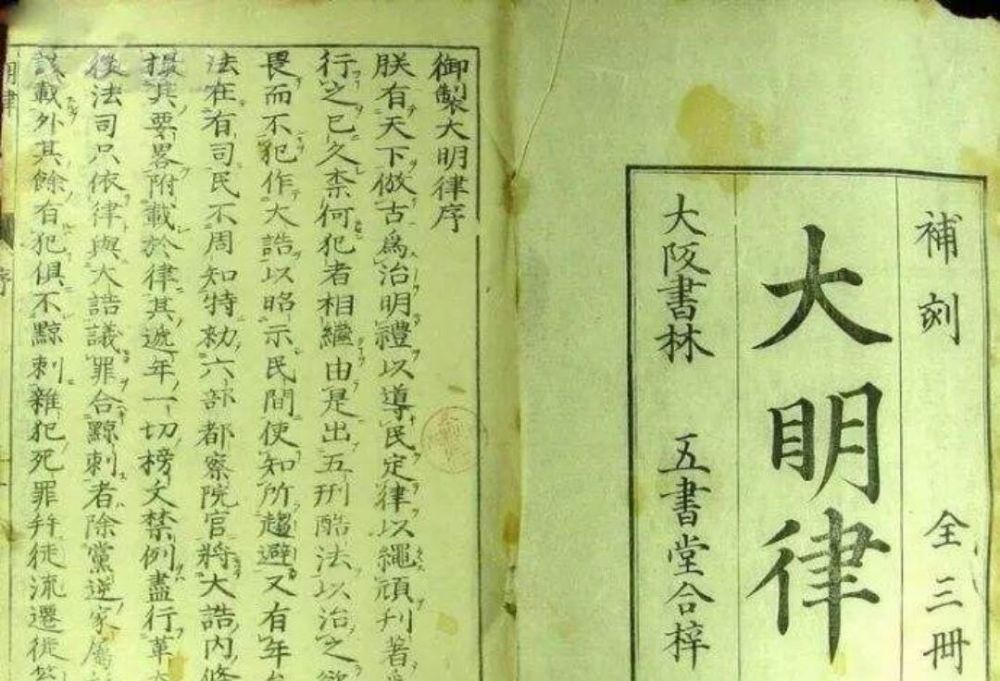 補刻 全三冊
大明律
大阪書林 五書堂合梓
御製大明律序
朕有天下倣古爲治明禮以導民定律以繩頑刋著
行之已久柰何犯者相繼由是出五刑酷法以治之欲
畏而不犯作大誥以昭示民間使知所趨避又有年
法在有司民不周知特勑六部都察院官將大誥内條
撮其要畧附載於律其逓年一切榜文禁例盡行革
後法司只依律與大誥議罪合黥刺者除黨逆家屬
該載外其餘有犯俱不黥刺雜犯死罪幷徒流遷徙笞
明律
序